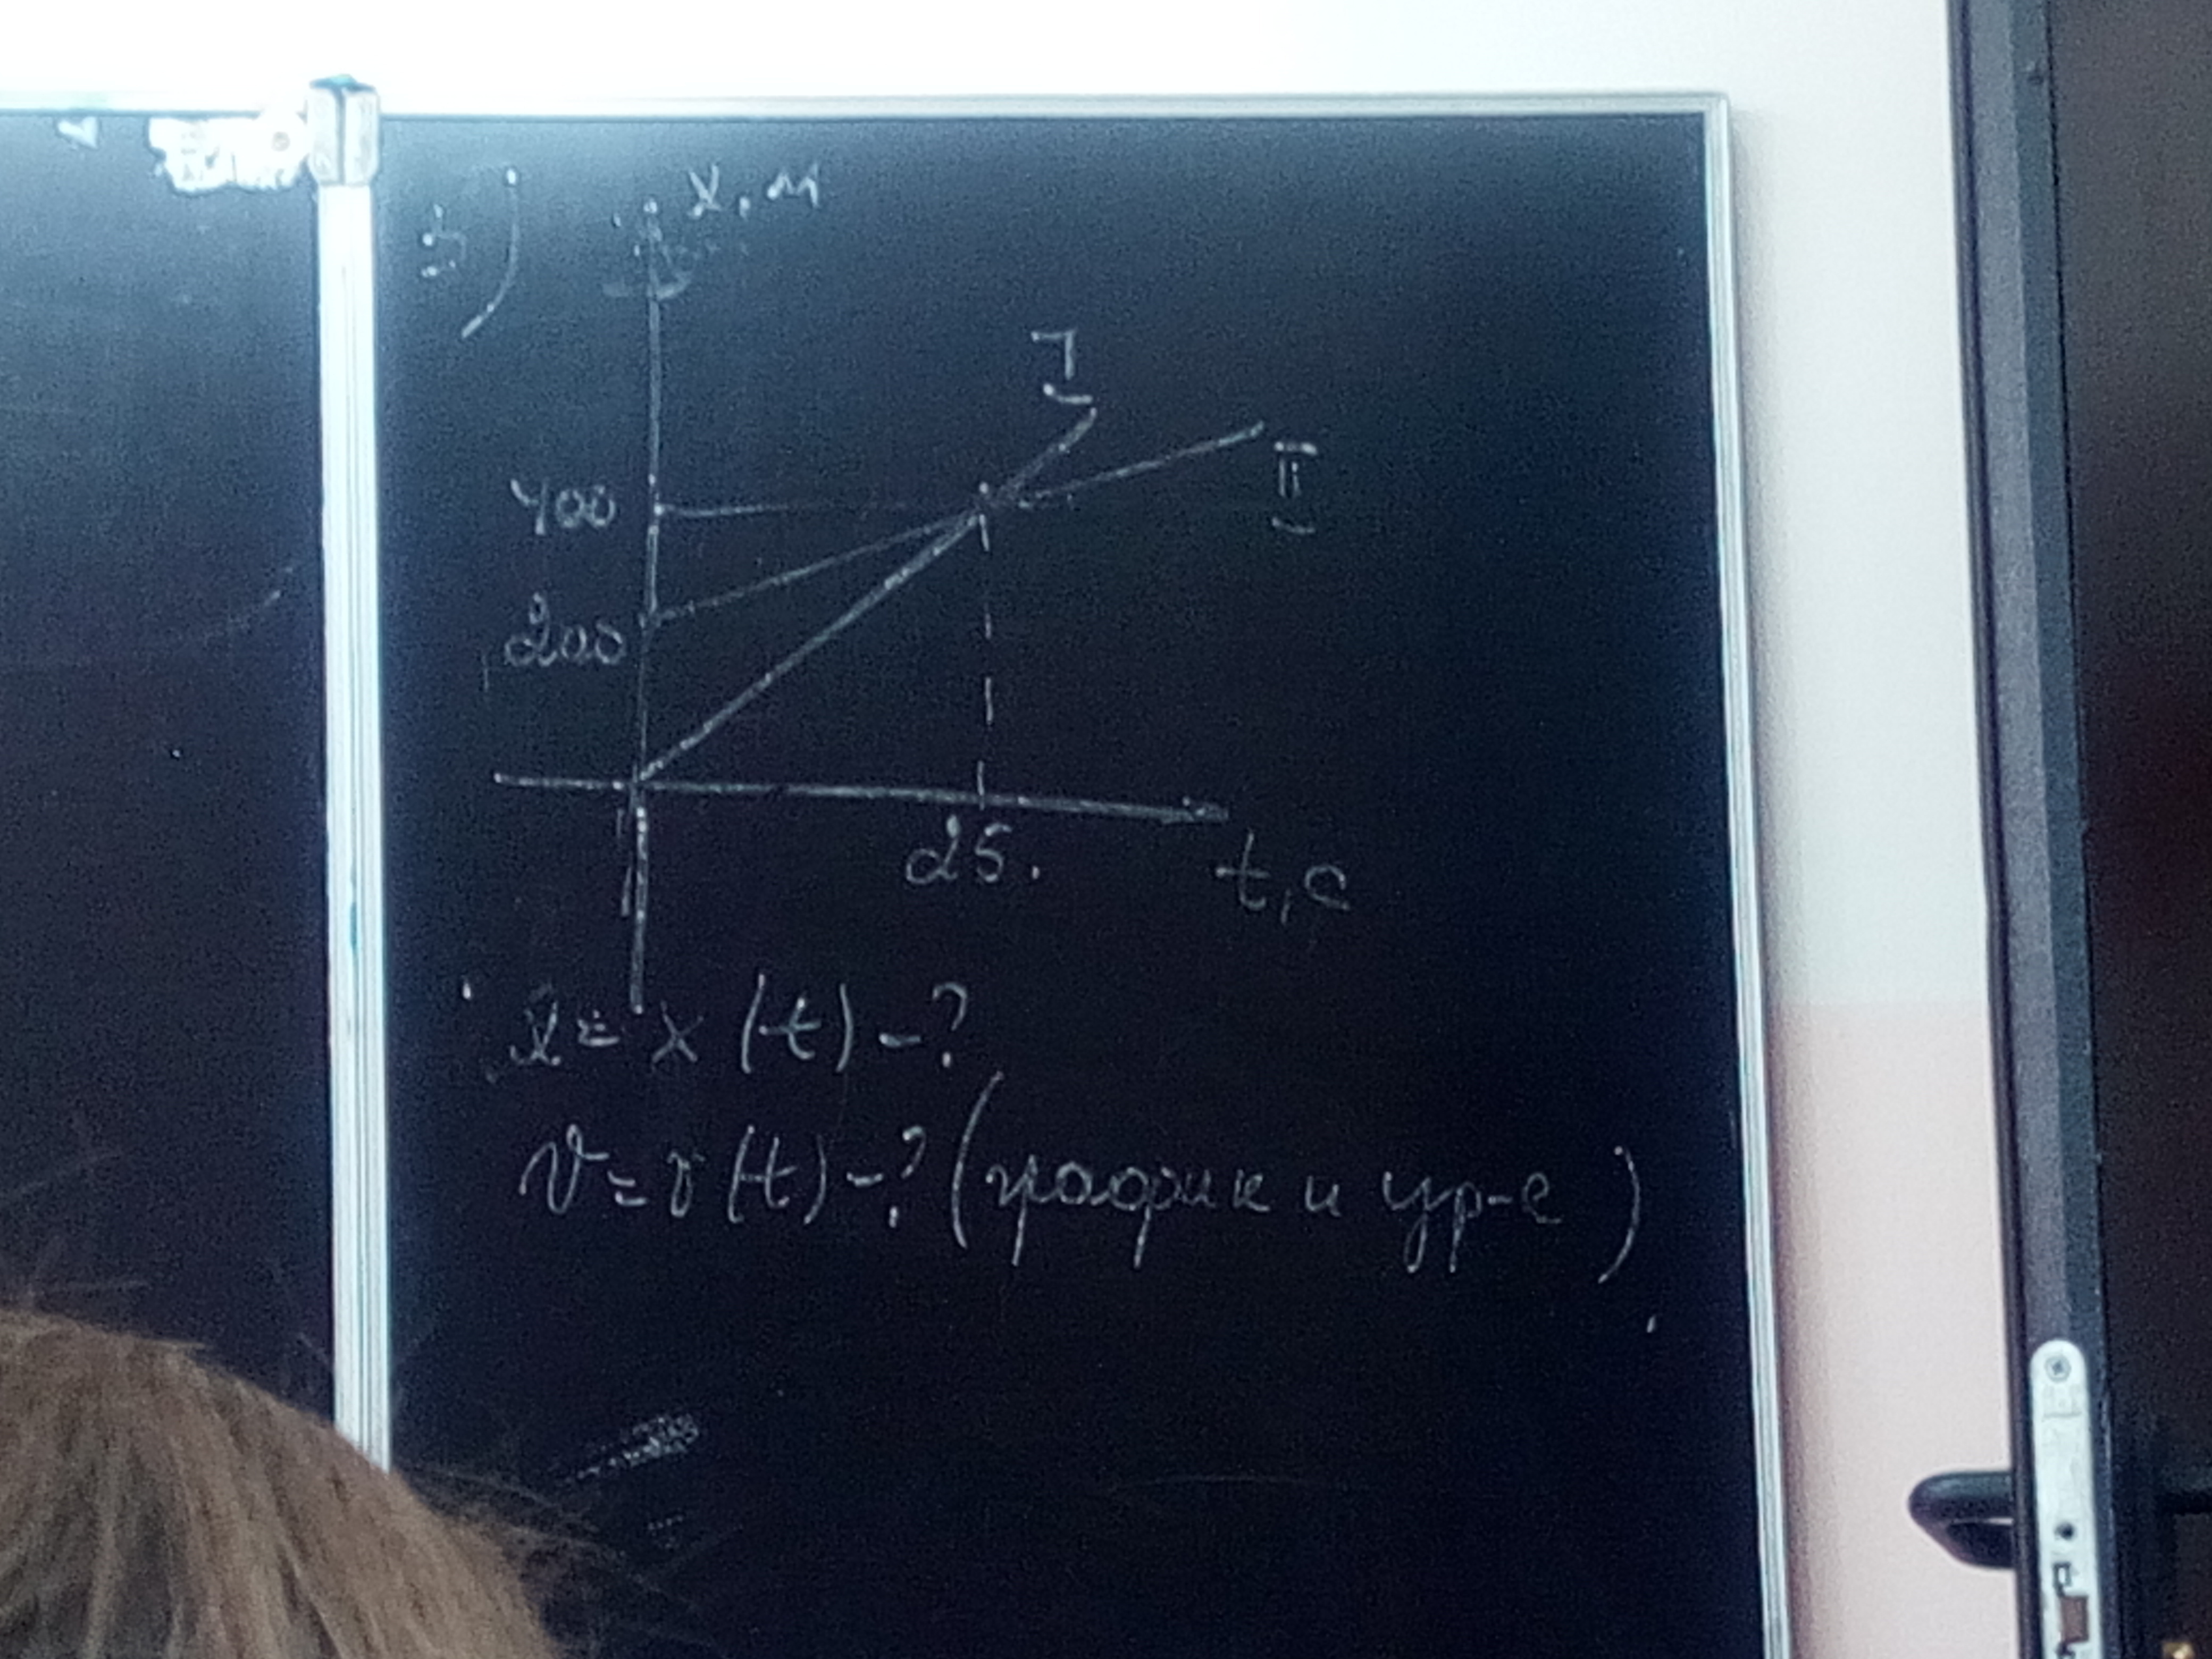 x, м
I
II
400
200
25.
t, c
x = x (t) - ?
v = v (t) - ? (график и ур-е)